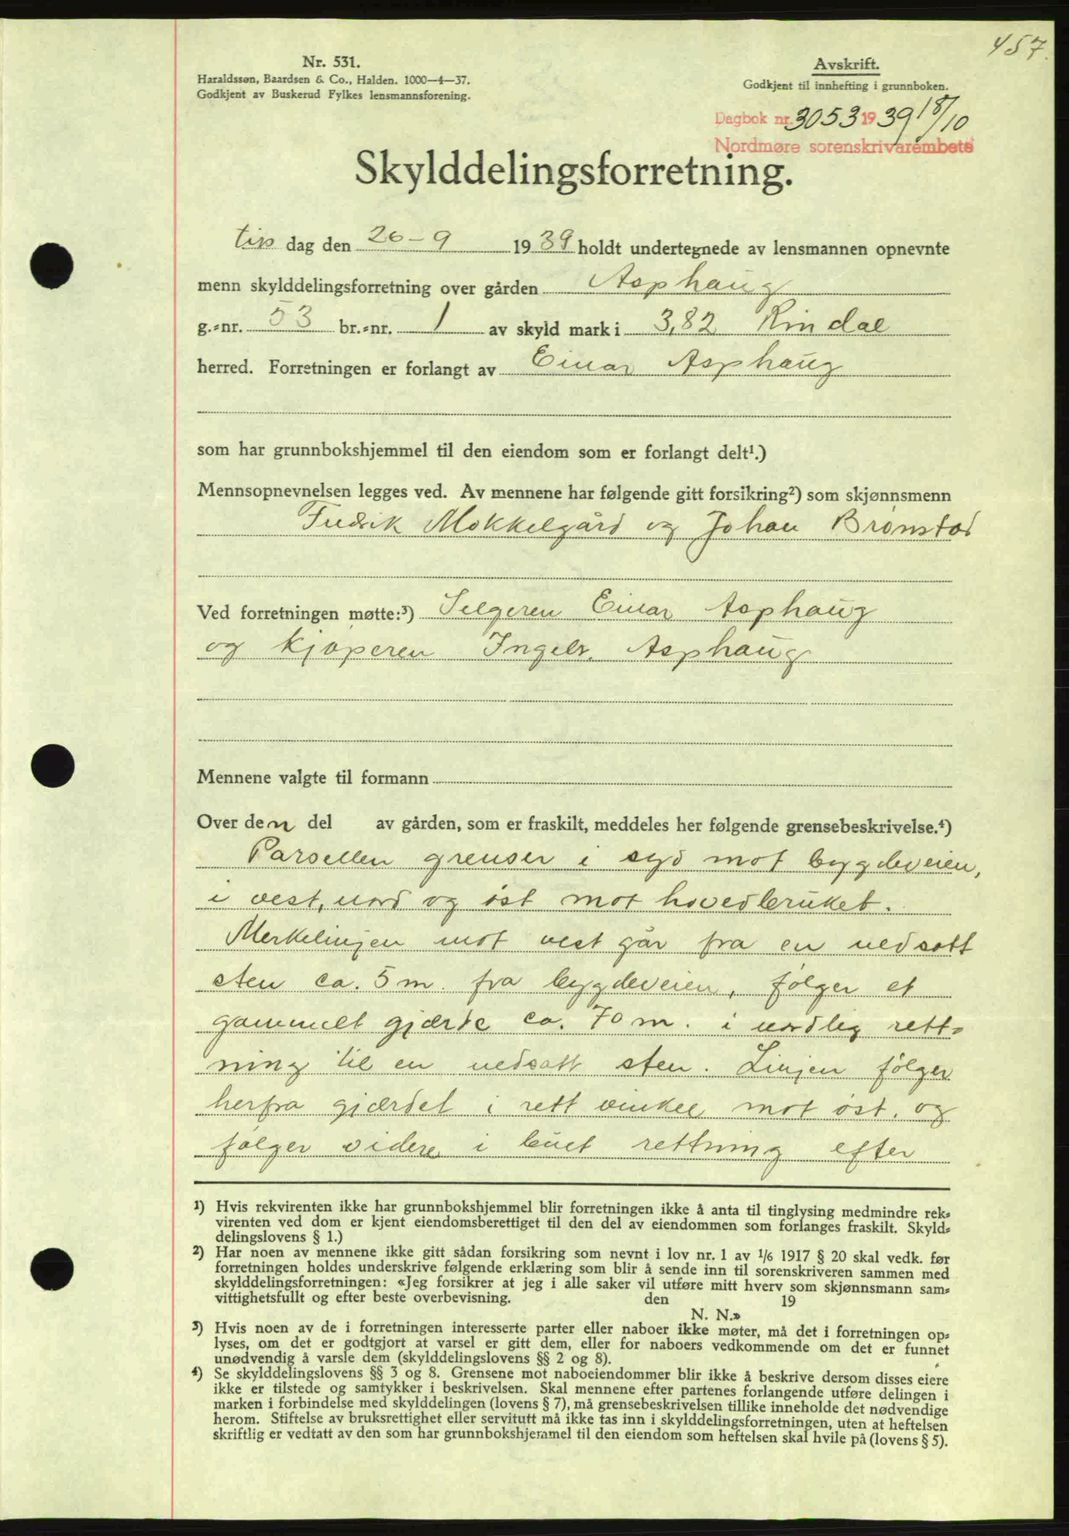 457.
Nr. 531.
Haraldssøn, Baardsen & Co., Halden. 1000—4—37.
Godkjent av Buskerud Fylkes lensmannsforening.
Avskrift.
Godkjent til innhefting i grunnboken.
Dagbok nr. 3053 1939 18/10
Nordmøre sorenskrivarembete
Skylddelingsforretning.
tirs dag den 26-9 1939 holdt undertegnede av lensmannen opnevnte
menn skylddelingsforretning over gården Asphaug
g.=nr. 53 br.=nr. 1 av skyld mark i 3,82 Rindal
herred. Forretningen er forlangt av Einar Asphaug
som har grunnbokshjemmel til den eiendom som er forlangt delt¹.)
Mennsopnevnelsen legges ved. Av mennene har følgende gitt forsikring²) som skjønnsmenn
Fredrik Mokkelgård og Johan Brønstad
Ved forretningen møtte:³) Selgeren Einar Asphaug
og kjøperen Ingebr. Asphaug
Mennene valgte til formann
Over den del av gården, som er fraskilt, meddeles her følgende grensebeskrivelse.⁴)
Parsellen grenser i syd mot bygdeveien,
i vest, nord og øst mot hovedbruket.
Merkelinjen mot vest går fra en nedsatt
sten ca. 5 m. fra bygdeveien, følger et
gammelt gjærde ca. 70 m. i nordlig rett=
ning til en nedsatt sten. Linjen følger
herfra gjærdet i rett vinkel mot øst, og
følger videre i buet rettning efter
¹) Hvis rekvirenten ikke har grunnbokshjemmel blir forretningen ikke å anta til tinglysing medmindre rek=
virenten ved dom er kjent eiendomsberettiget til den del av eiendommen som forlanges fraskilt. Skyld=
delingslovens § 1.)
²) Har noen av mennene ikke gitt sådan forsikring som nevnt i lov nr. 1 av 1/6 1917 § 20 skal vedk. før
forretningen holdes underskrive følgende erklæring som blir å sende inn til sorenskriveren sammen med
skylddelingsforretningen: «Jeg forsikrer at jeg i alle saker vil utføre mitt hverv som skjønnsmann sam=
vittighetsfullt og efter beste overbevisning. den 19
N. N.»
³) Hvis noen av de i forretningen interesserte parter eller naboer ikke møter, må det i forretningen op=
lyses, om det er godtgjort at varsel er gitt dem, eller for naboers vedkommende om det er funnet
unødvendig å varsle dem (skylddelingslovens §§ 2 og 8).
⁴) Se skylddelingslovens §§ 3 og 8. Grensene mot naboeiendommer blir ikke å beskrive dersom disses eiere
ikke er tilstede og samtykker i beskrivelsen. Skal mennene efter partenes forlangende utføre delingen i
marken i forbindelse med skylddelingen (lovens § 7), må grensebeskrivelsen tillike inneholde det nødvendige
herom. Stiftelse av bruksrettighet eller servitutt må ikke tas inn i skylddelingsforretningen, uten at heftelsen
skriftlig er vedtatt av den som har grunnbokshjemmel til den eiendom som heftelsen skal hvile på (lovens § 5).